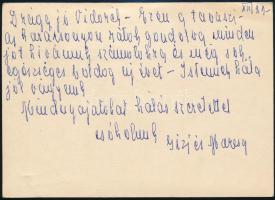 XII/21.
Drága jó Vidorék – Ezen a
az karácsonyon rátok gondolva minden
jót kívánunk számotokra és még sok
egészséges boldog új évet – Istennek hála
jól vagyunk
Mindnyájatokat hálás szeretettel
csókolunk
Gizi és